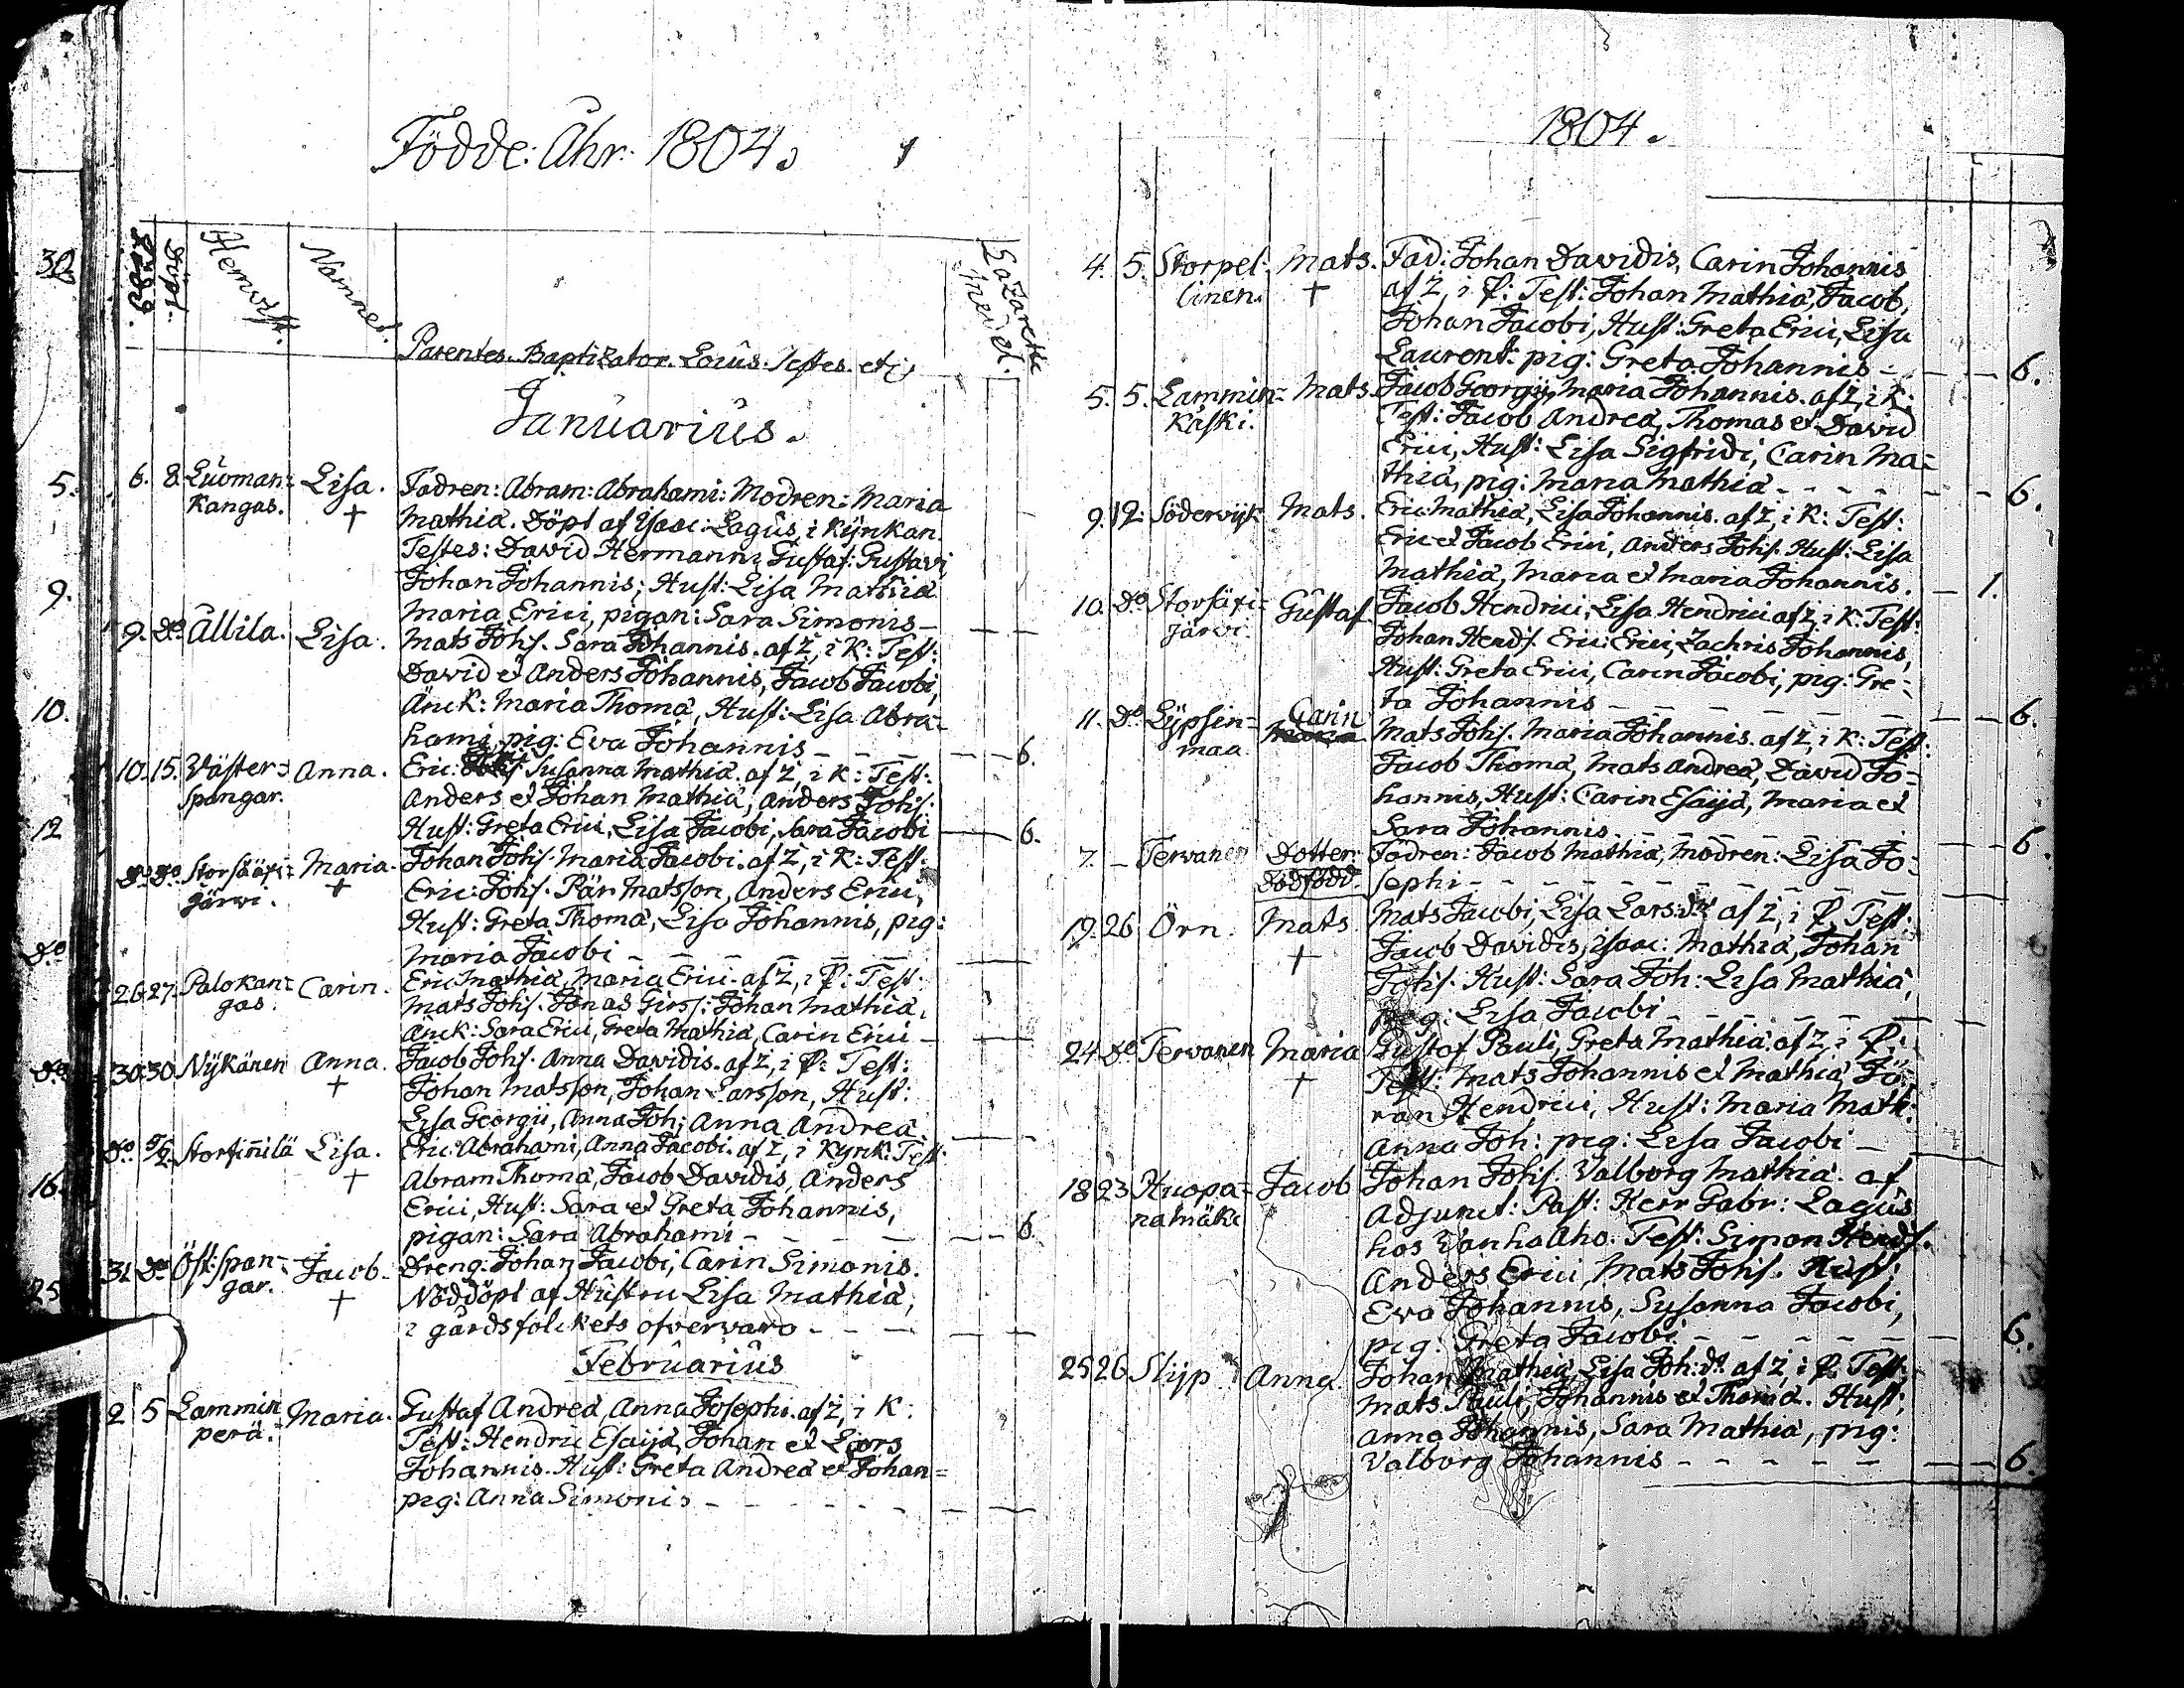 Födde: Åhr: 1804.
Född. Döpt. Hemvist. Namnet. Lazaretts medel.
Parentes. Baptizator. Locus. Testes. etc
Januarius.
6. 8. Luoman= Lisa. Fadren: Abram: Abrahami: Modren: Maria
kangas. † Mathiæ. Döpt af Isaac: Lagus, i Kyrkan.
Testes: David Hermanni Gustaf: Gustavi
Johan Johannis; Hust: Lisa Mathiæ
Maria Erici, pigan: Sara Simonis —
9. Do Allila. Lisa. Mats Johs. Sara Johannis. af Z, i K: Test:
David et Anders Johannis, Jacob Jacobi,
Änck: Maria Thomæ, Hust: Lisa Abra=
hami, pig: Eva Johannis — — — 6.
10. 15. Wäster= Anna. Eric: Susanna Mathiæ. af Z, i K: Test:
spångar. Anders et Johan Mathiæ, Anders Johs.
Hust: Greta Erici, Lisa Jacobi, Sara Jacobi — 6.
Do Do Storsääxi= Maria. Johan Johs. Maria Jacobi. af Z, i K: Test:
järvi. † Eric: Johs. Pär Matsson, Anders Erici,
Hust: Greta Thomæ, Lisa Johannis, pig:
Maria Jacobi — — —
26. 27. Palokan= Carin. Eric Mathiæ, Maria Erici. af Z, i P: Test:
gas. Mats Johs. Jonas Girss: Johan Mathiæ,
Änck: Sara Erici, Greta Mathiæ, Carin Erici —
30. 30. Nykänen Anna. Jacob Johs. Anna Davidis. af Z, i P: Test:
† Johan Matsson, Johan Larsson, Hust:
Lisa Georgii, Anna Joh; Anna Andreæ
Do Stortiñilä Lisa. Eric: Abrahami, Anna Jacobi. af Z, i Kyrk: Test:
† Abram Thomæ, Jacob Davidis, Anders
Erici, Hust: Sara et Greta Johannis,
pigan: Sara Abrahami — — — 6
31. Do Öst: span= Jacob. Dreng. Johan Jacobi, Carin Simonis.
gar. † Nöddöpt af Hustru Lisa Mathiæ,
i gårdsfolckets öfvervaro — — —
Februarius
2 5 Lammin Maria. Gustaf Andreæ, Anna Josephi. af Z, i K:
perä. Test: Hendric Esaijæ, Johan et Lars
Johannis. Hust: Greta Andreæ et Johan=
pig: Anna Simonis — — —
1804.
4. 5. Storpel= Mats. Fad: Johan Davidis, Carin Johannis
linen. † af Z, i P: Test: Johan Mathiæ, Jacob,
Johan Jacobi, Hust: Greta Erici, Lisa
Laurent: pig: Greta Johannis — 6.
5. 5. Lammin= Mats. Jacob Georgii, Maria Johannis. af Z, i K:
kåski. Test: Jacob Andreæ, Thomas et David
Erici, Hust: Lisa Sigfridi, Carin Ma=
thiæ, pig: Maria Mathiæ — — — 6.
9. 12. Södervijk Mats. Eric: Mathiæ, Lisa Johannis. af Z, i K: Test:
Eric et Jacob Erici, Anders Johs. Hust: Lisa
Mathiæ, Maria et Maria Johannis. — 1.
10. Do Storsäxi= Gustaf. Jacob Hendrici, Lisa Hendrici af Z, i K: Test:
järvi. Johan Hends. Eric: Erici, Zachris Johannis,
Hust: Greta Erici, Carin Jacobi, pig: Gre=
ta Johannis — — — 6.
11. Do Lypsin= Carin Mats Johs. Maria Johannis. af Z, i K: Test:
maa. Jacob Thomæ, Mats Andreæ, David Jo=
hannis, Hust: Carin Esaijæ, Maria et
Sara Johannis — — — 6.
7. — Tervanen Dotter: Fadren: Jacob Mathiæ, Modren: Lisa Jo=
dödfödd. sephi — — —
19. 26 Örn. Mats Mats Jacobi, Lisa Lars:dr af Z, i P. Test:
† Jacob Davidis, Isaac: Mathiæ, Johan
Johs. Hust: Sara Joh: Lisa Mathiæ,
pig: Lisa Jacobi — — —
24 Do Tervanen Maria Gustaf Pauli, Greta Mathiæ. af Z, i P:
† Test: Mats Johannis et Mathiæ, Jö=
ran Hendrici, Hust: Maria Math:
Anna Joh: pig: Lisa Jacobi —
18 23 Huopa= Jacob Johan Johs. Valborg Mathiæ. af
namäki Adjunct: Past: Herr Gabr: Lagus
hos Vanha Aho. Test: Simon Hends.
Anders Erici, Mats Johs. Hust:
Eva Johannis, Susanna Jacobi,
pig: Greta Jacobi — — — 6.
25 26 Slijp Anna. Johan Mathiæ, Lisa Joh:dr. af Z, i P. Test:
Mats Pauli, Johannis et Thomæ. Hust;
Anna Johannis, Sara Mathiæ, pig:
Valborg Johannis — — — 6.